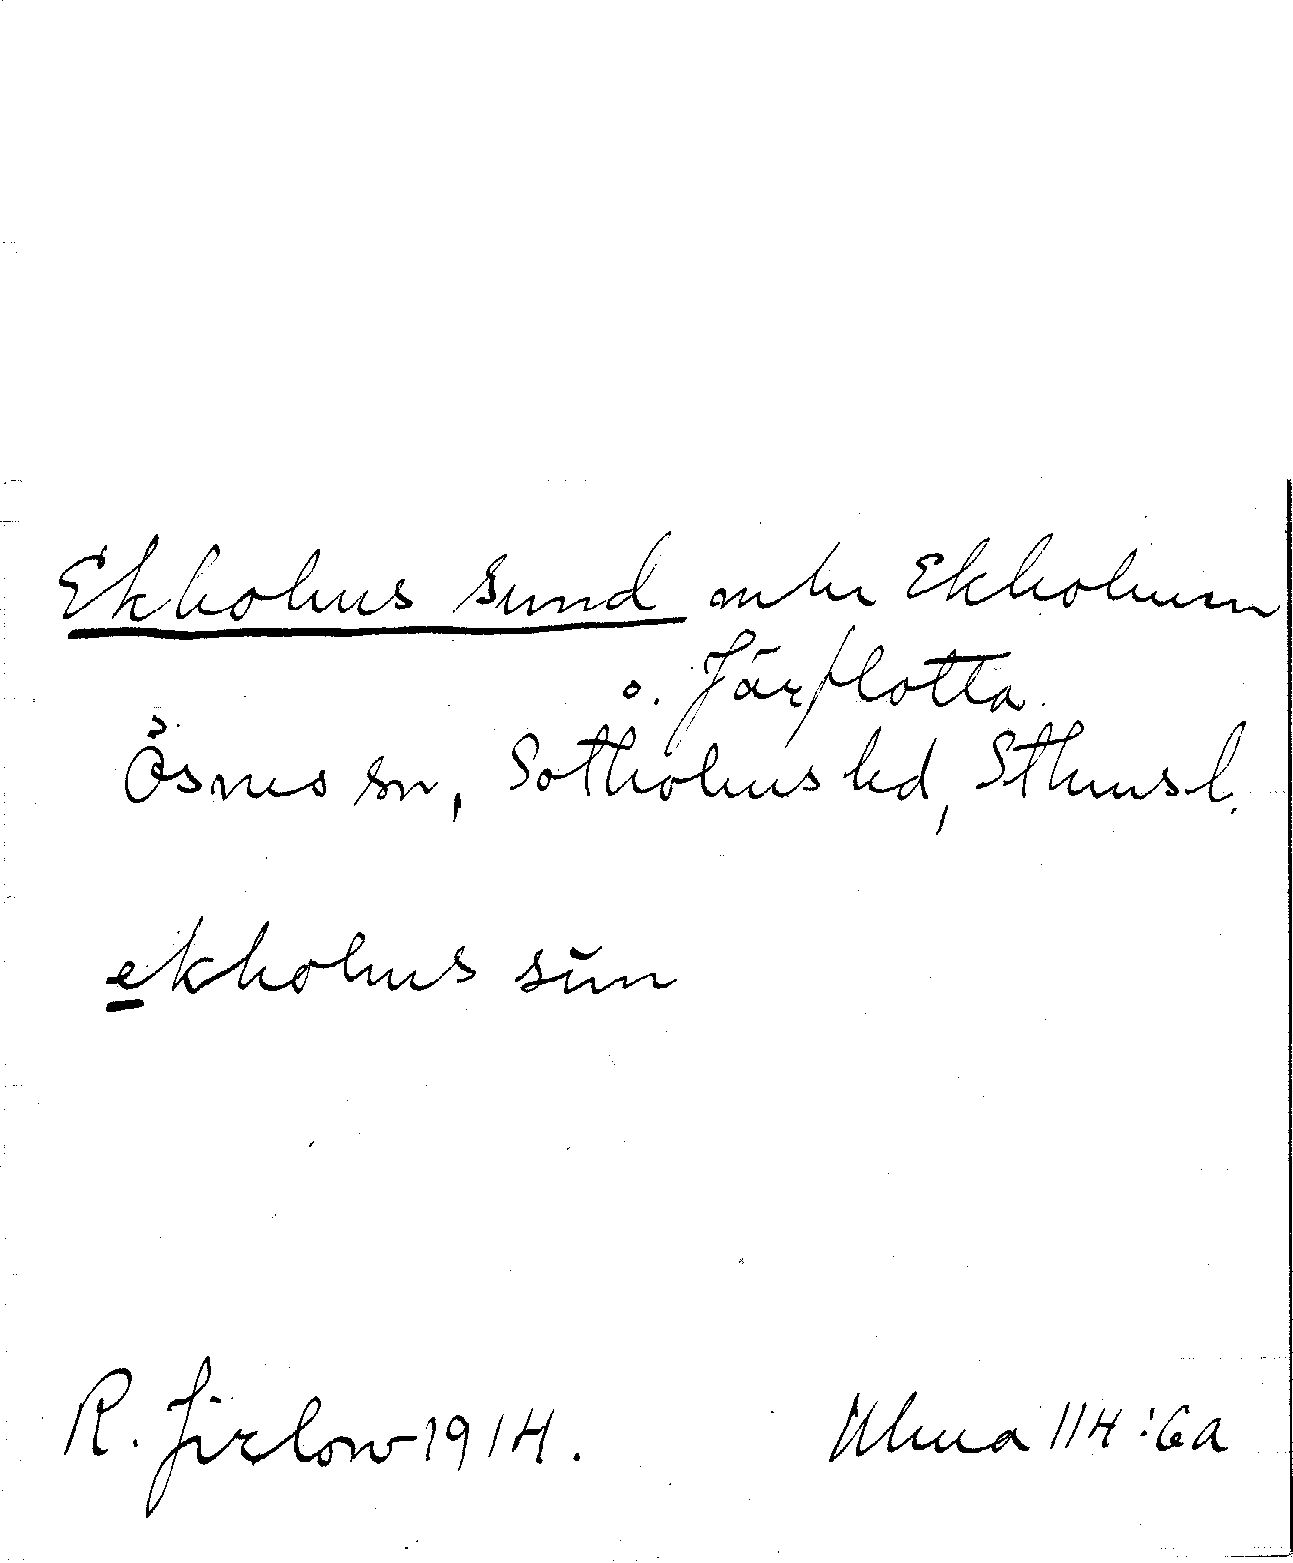 Ekholms sund mln Ekholmen
o. Järflotta.
Ösmo sn, Sotholms hd, Sthmsl.
ekholms sŭn
R. Jirlow 1914.
Ulma 114:6a